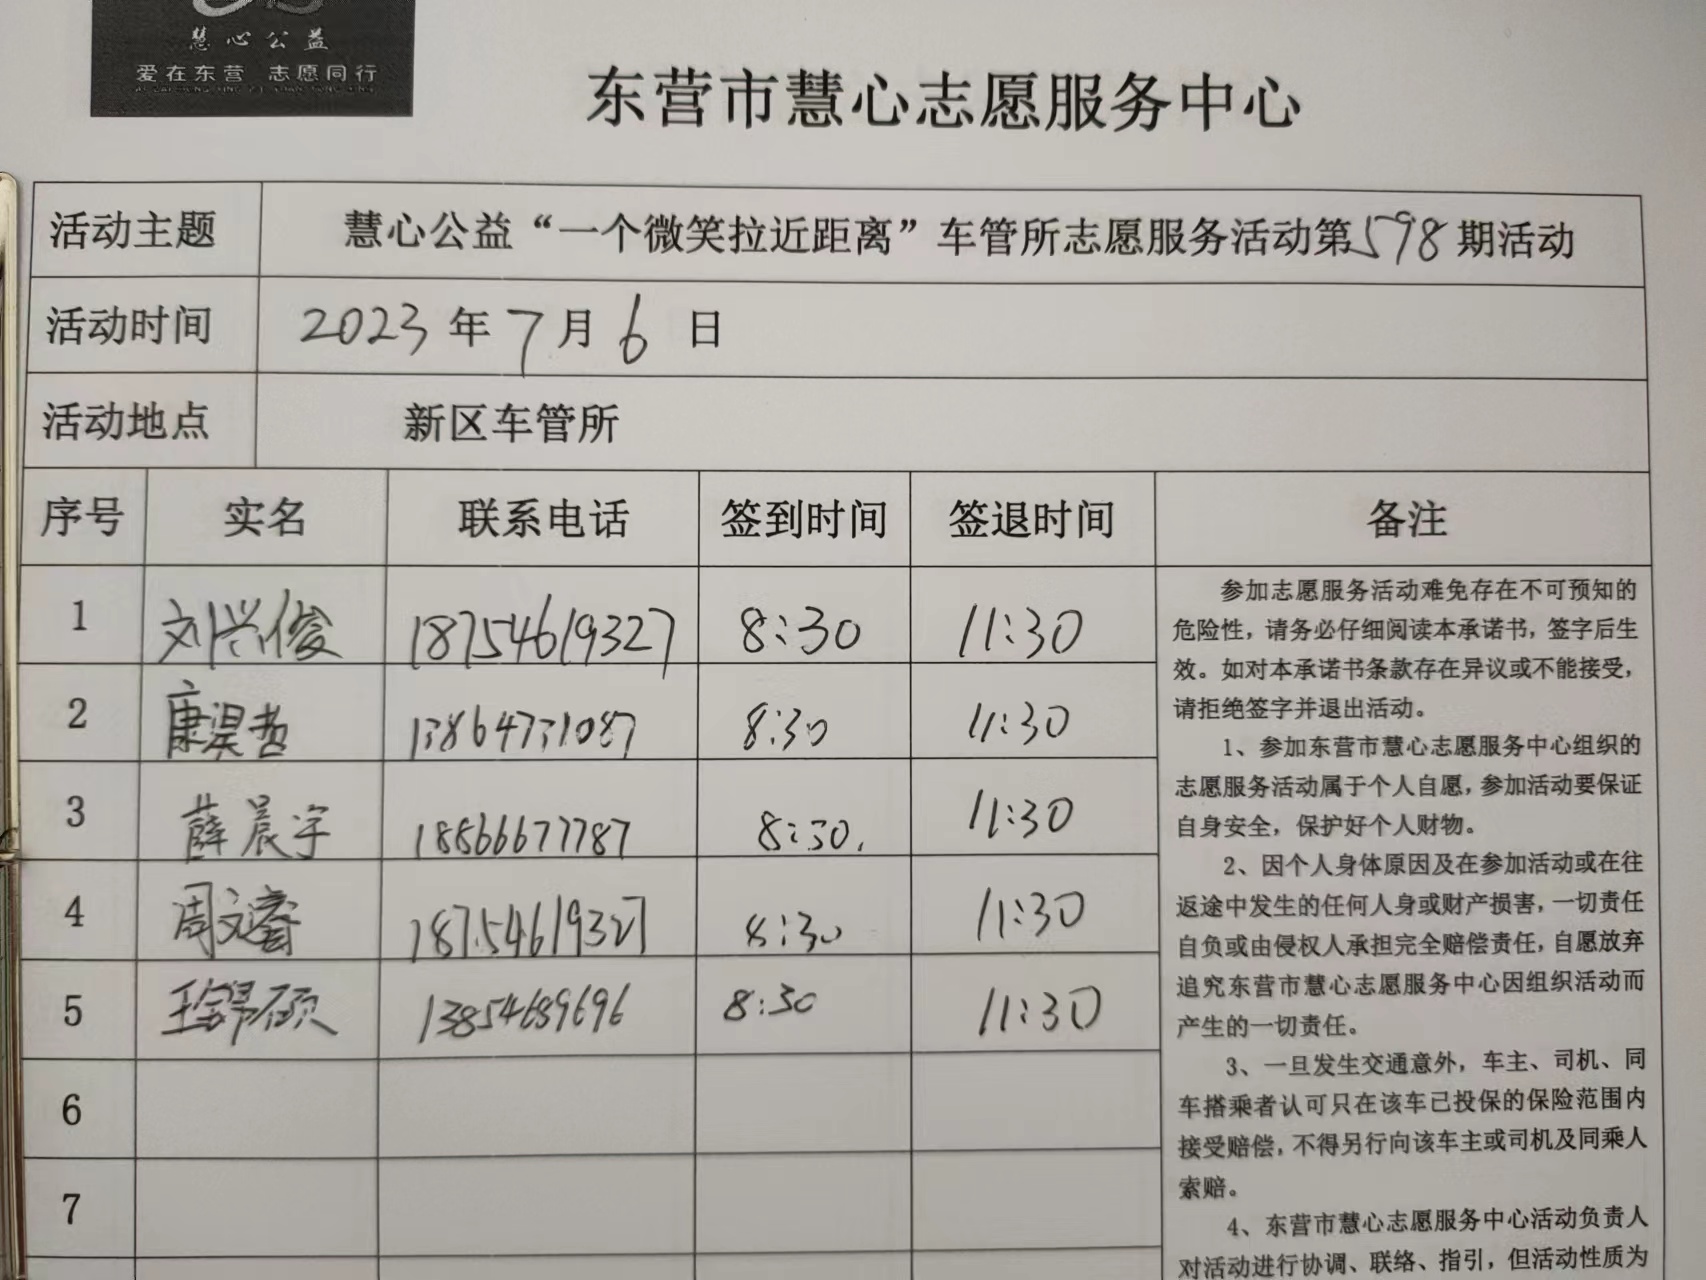 慧心公益
爱在东营 志愿同行
东营市慧心志愿服务中心
活动主题 慧心公益“一个微笑拉近距离”车管所志愿服务活动第598期活动
活动时间 2023年7月6日
活动地点 新区车管所
序号 实名 联系电话 签到时间 签退时间 备注
1 刘兴俊 18754619327 8:30 11:30
2 康淏哲 13864731087 8:30 11:30
3 薛晨宇 18866677787 8:30. 11:30
4 周文睿 18754619327 8:30 11:30
5 13854689696 8:30 11:30
6
7
参加志愿服务活动难免存在不可预知的
危险性，请务必仔细阅读本承诺书，签字后生
效。如对本承诺书条款存在异议或不能接受，
请拒绝签字并退出活动。
1、参加东营市慧心志愿服务中心组织的
志愿服务活动属于个人自愿，参加活动要保证
自身安全，保护好个人财物。
2、因个人身体原因及在参加活动或在往
返途中发生的任何人身或财产损害，一切责任
自负或由侵权人承担完全赔偿责任，自愿放弃
追究东营市慧心志愿服务中心因组织活动而
产生的一切责任。
3、一旦发生交通意外，车主、司机、同
车搭乘者认可只在该车已投保的保险范围内
接受赔偿，不得另行向该车主或司机及同乘人
索赔。
4、东营市慧心志愿服务中心活动负责人
对活动进行协调、联络、指引，但活动性质为